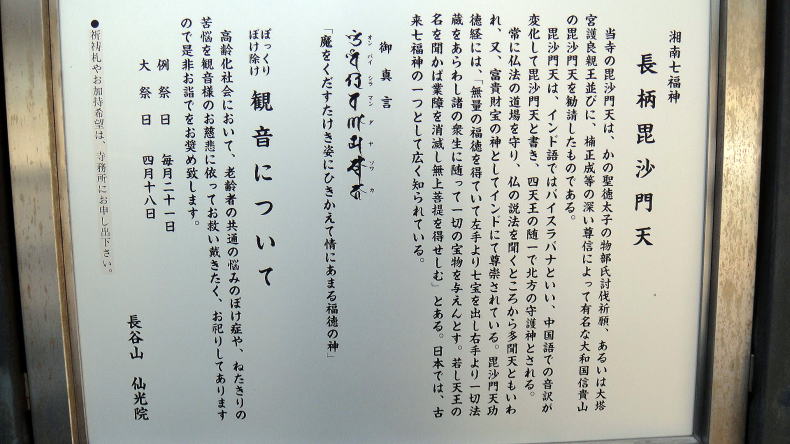 湘南七福神
長柄毘沙門天
当寺の毘沙門天は、かの聖徳太子の物部氏討伐祈願、あるいは大塔
宮護良親王並びに、楠正成等の深い尊信によって有名な大和国信貴山
の毘沙門天を勧請したものである。
毘沙門天は、インド語ではバイスラバナといい、中国語での音訳が
変化して毘沙門天と書き、四天王の随一で北方の守護神とされる。
常に仏法の道場を守り、仏の説法を聞くところから多聞天ともいわ
れ、又、富貴財宝の神としてインドにて尊崇されている。毘沙門天功
徳経には、「無量の福徳を得ていて左手より七宝を出し右手より一切法
蔵をあらわし諸の衆生に随って一切の宝物を与えんとす。若し天王の
名を聞かば業障を消滅し無上菩提を得せしむ」とある。日本では、古
来七福神の一つとして広く知られている。
御真言
オン ベイ シラ マン ダ ヤ ソワ カ
「魔をくだすたけき姿にひきかえて情にあまる福徳の神」
ぽっくり
ぼけ除け
観音について
高齢化社会において、老齢者の共通の悩みのぼけ症や、ねたきりの
苦悩を観音様のお慈悲に依ってお救い戴きたく、お祀りしてあります
ので是非お詣でをお奨め致します。
例祭日 毎月二十一日
大祭日 四月十八日
●祈祷札やお加持希望は、寺務所にお申し出下さい。
長谷山 仙光院